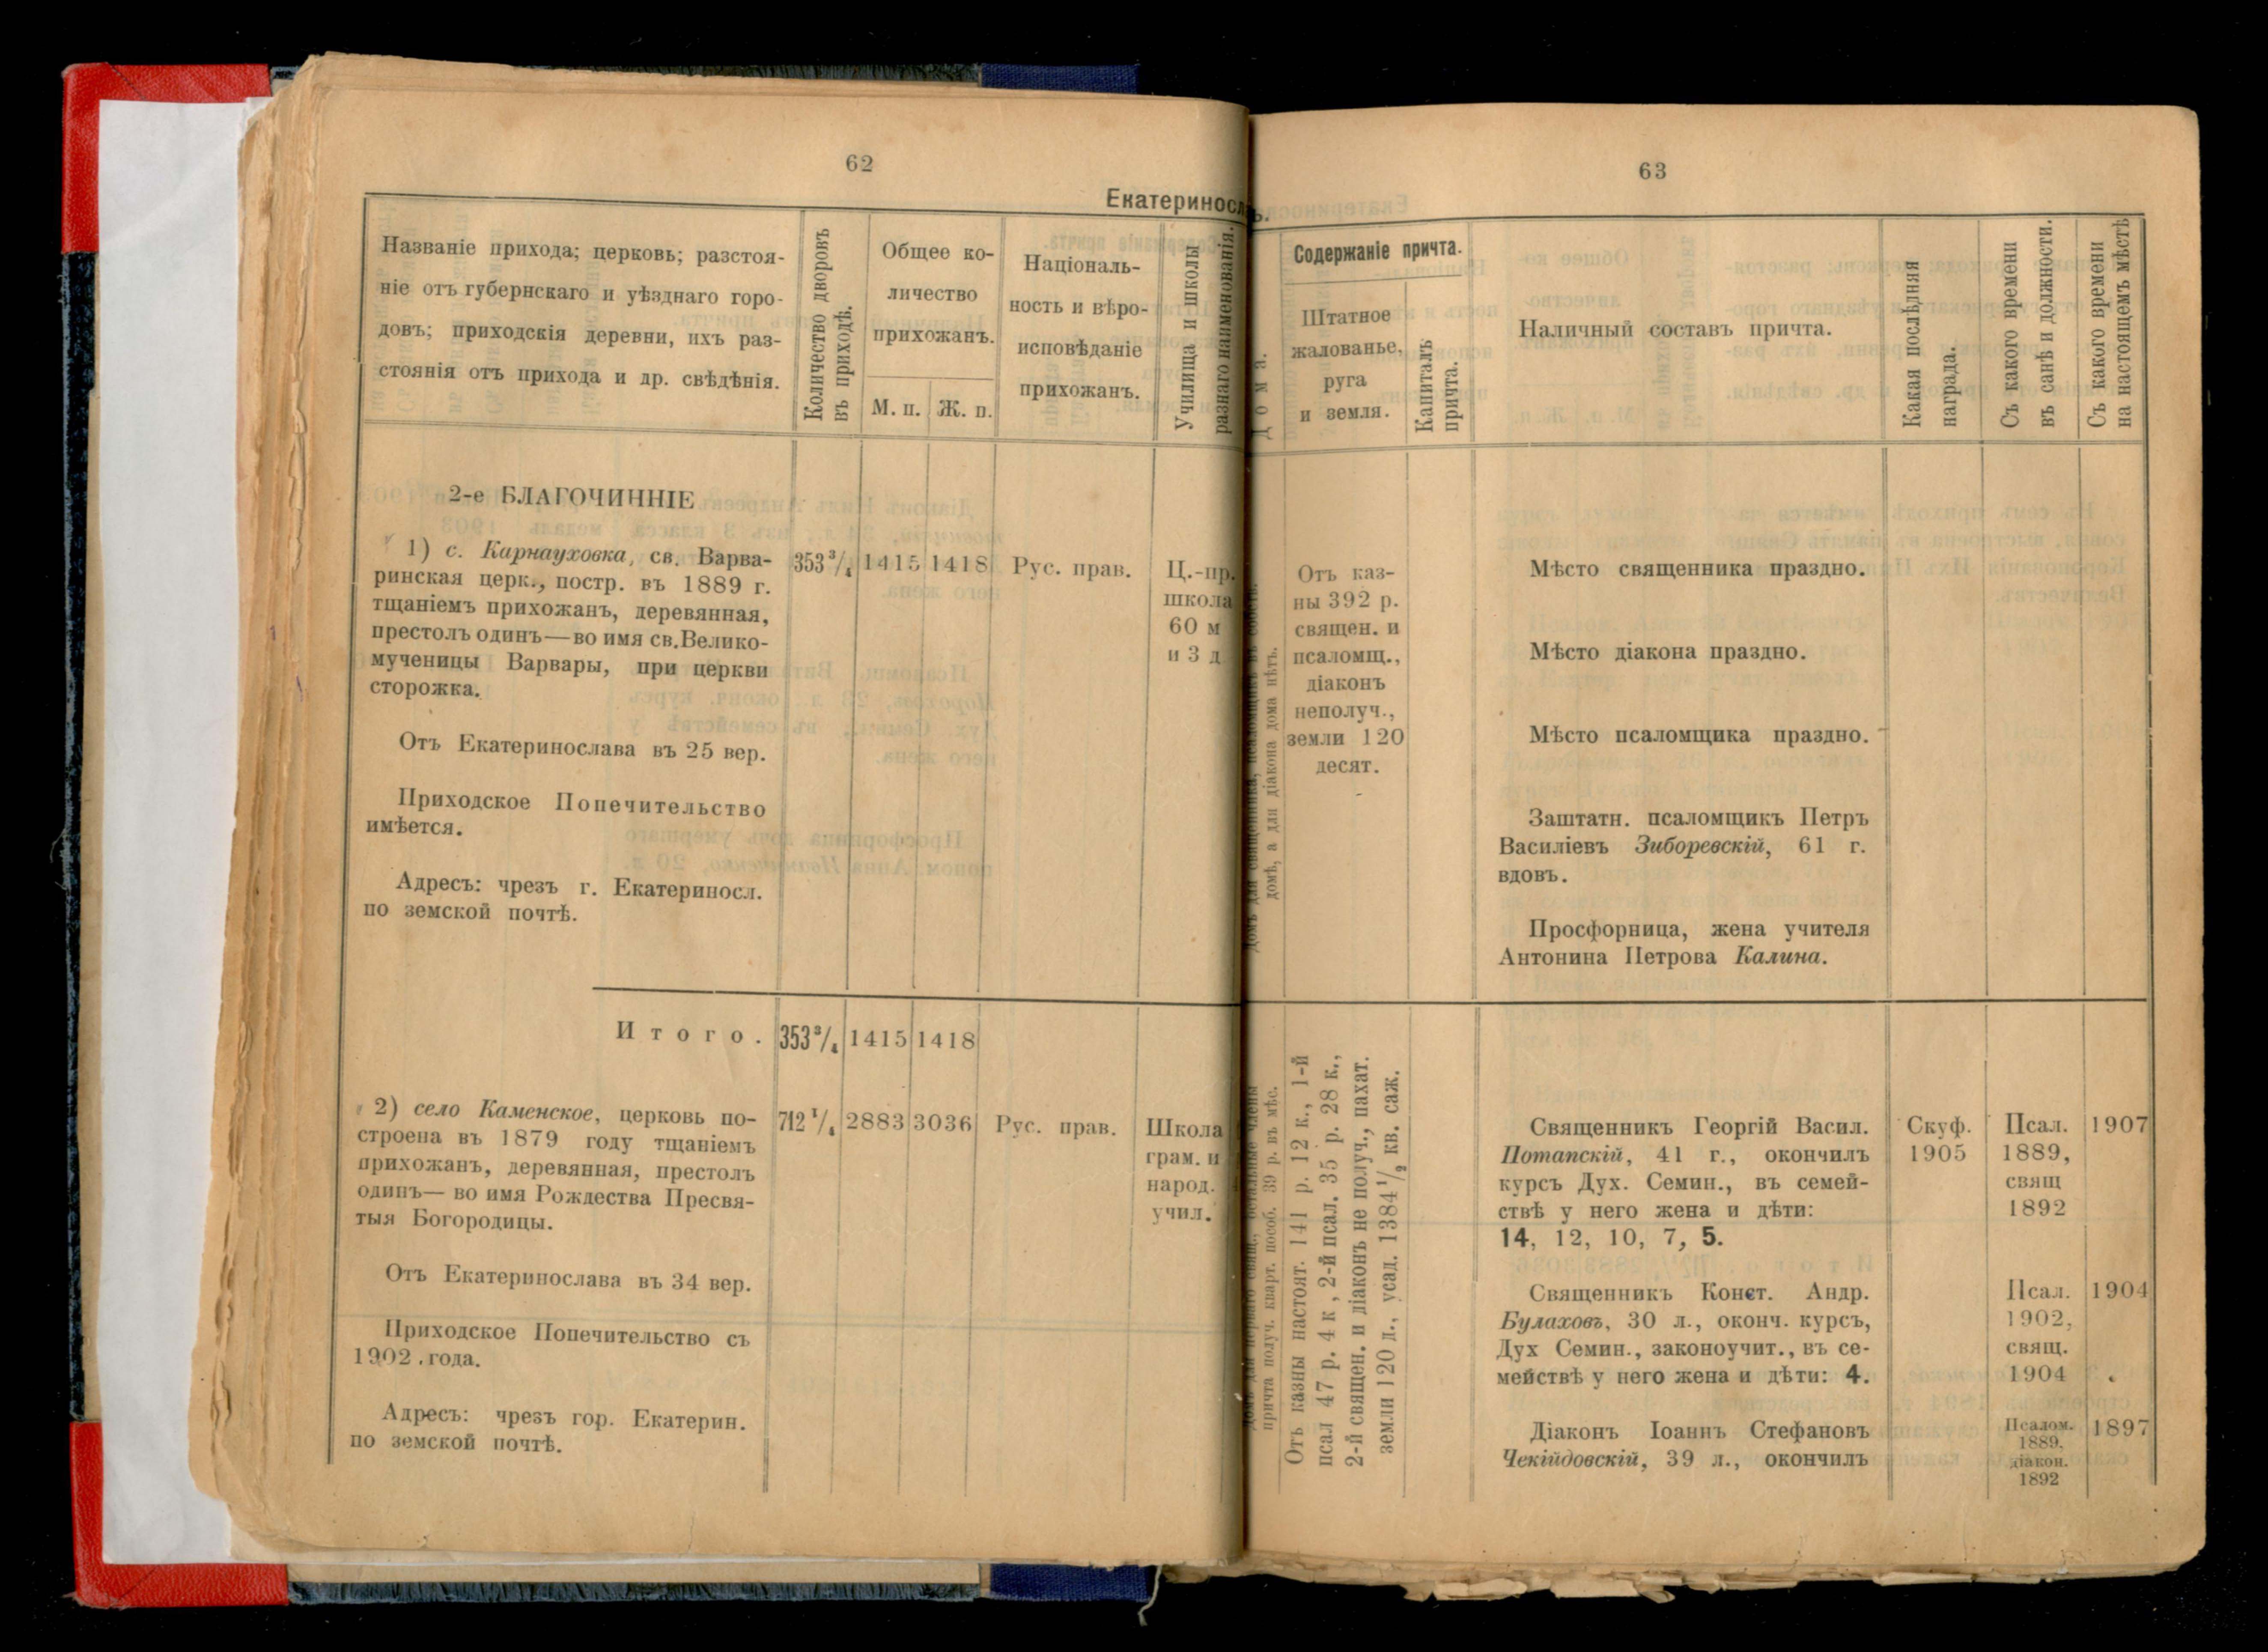 62
Екатеринославъ.
Названіе прихода; церковь; разстоя-
ніе отъ губернскаго и уѣзднаго горо-
довъ; приходскія деревни, ихъ раз-
стоянія отъ прихода и др. свѣдѣнія.
Количество дворовъ
въ приходѣ.
Общее ко-
личество
прихожанъ.
М. п.
Ж. п.
Національ-
ность и вѣро-
исповѣданіе
прихожанъ.
Училища и школы
разнаго наименованія.
2-е БЛАГОЧИННІЕ
1) с. Карнауховка, св. Варва-
ринская церк., постр. въ 1889 г.
тщаніемъ прихожанъ, деревянная,
престолъ одинъ—во имя св.Велико-
мученицы Варвары, при церкви
сторожка.
353 3/4
1415
1418
Рус. прав.
Ц.-пр.
школа
60 м
и 3 д
Отъ Екатеринослава въ 25 вер.
Приходское Попечительство
имѣется.
Адресъ: чрезъ г. Екатериносл.
по земской почтѣ.
Итого.
353 3/4
1415
1418
2) село Каменское, церковь по-
строена въ 1879 году тщаніемъ
прихожанъ, деревянная, престолъ
одинъ— во имя Рождества Пресвя-
тыя Богородицы.
712 1/4
2883
3036
Рус. прав.
Школа
грам. и
народ.
учил.
Отъ Екатеринослава въ 34 вер.
Приходское Попечительство съ
1902 . года.
Адресъ: чрезъ гор. Екатерин.
по земской почтѣ.
63
Дома.
Содержаніе причта.
Штатное
жалованье,
руга
и земля.
Капиталъ
причта.
Наличный составъ причта.
Какая послѣдняя
награда.
Съ какого времени
въ санѣ и должности.
Съ какого времени
на настоящемъ мѣстѣ
домѣ, а для діакона дома нѣтъ.
Отъ каз-
ны 392 р.
священ. и
псаломщ.,
діаконъ
неполуч.,
земли 120
десят.
Мѣсто священника праздно.
Мѣсто діакона праздно.
Мѣсто псаломщика праздно.
Заштатн. псаломщикъ Петръ
Василіевъ Зиборевскій, 61 г.
вдовъ.
Просфорница, жена учителя
Антонина Петрова Калина.
причта получ. кварт. пособ. 39 р. въ мѣс.
Отъ казны настоят. 141 р. 12 к., 1-й
псал 47 р. 4 к , 2-й псал. 35 р. 28 к.,
2-й священ. и діаконъ не получ., пахат.
земли 120 д., усад. 1384 1/2 кв. саж.
Священникъ Георгій Васил.
Потапскій, 41 г., окончилъ
курсъ Дух. Семин., въ семей-
ствѣ у него жена и дѣти:
14, 12, 10, 7, 5.
Скуф.
1905
Псал.
1889,
свящ
1892
1907
Священникъ Конст. Андр.
Булаховъ, 30 л., оконч. курсъ,
Дух Семин., законоучит., въ се-
мействѣ у него жена и дѣти: 4.
Псал.
1902,
свящ.
1904
1904
Діаконъ Іоаннъ Стефановъ
Чекійдовскій, 39 л., окончилъ
Псалом.
1889,
діакон.
1892
1897